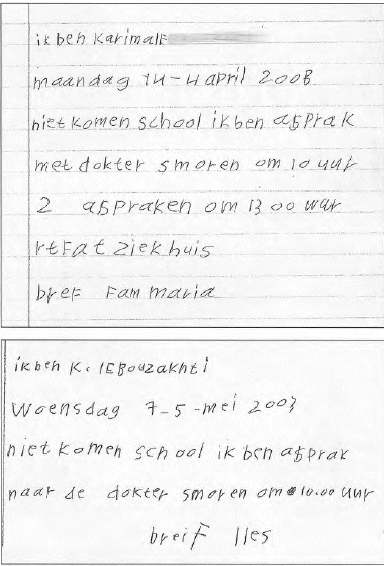 ik ben Karima
maandag 14-4 april 2008
niet komen school ik ben afsprak
met dokter smoren om 10 uur
2 afspraken om 13 00 uur
ziek huis
bref Fam maria
ik ben K.
Woensdag 7-5-mei 2003
niet komen school ik ben afsprak
naar de dokter smoren om 10.00 uur
breif lles